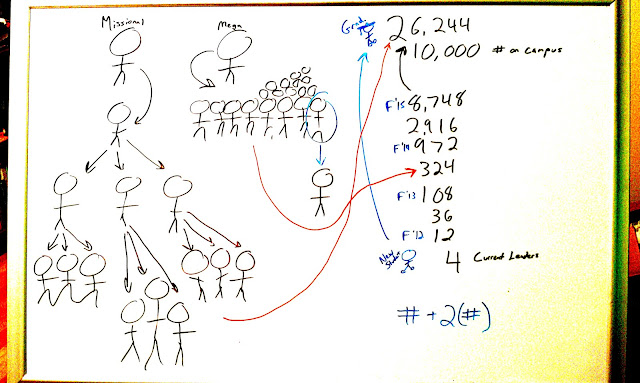 Missional
Mega
26,244
10,000 # on campus
F'15 8,748
2,916
F'14 972
324
F'13 108
36
F'12 12
4 Current Leaders
# + 2(#)